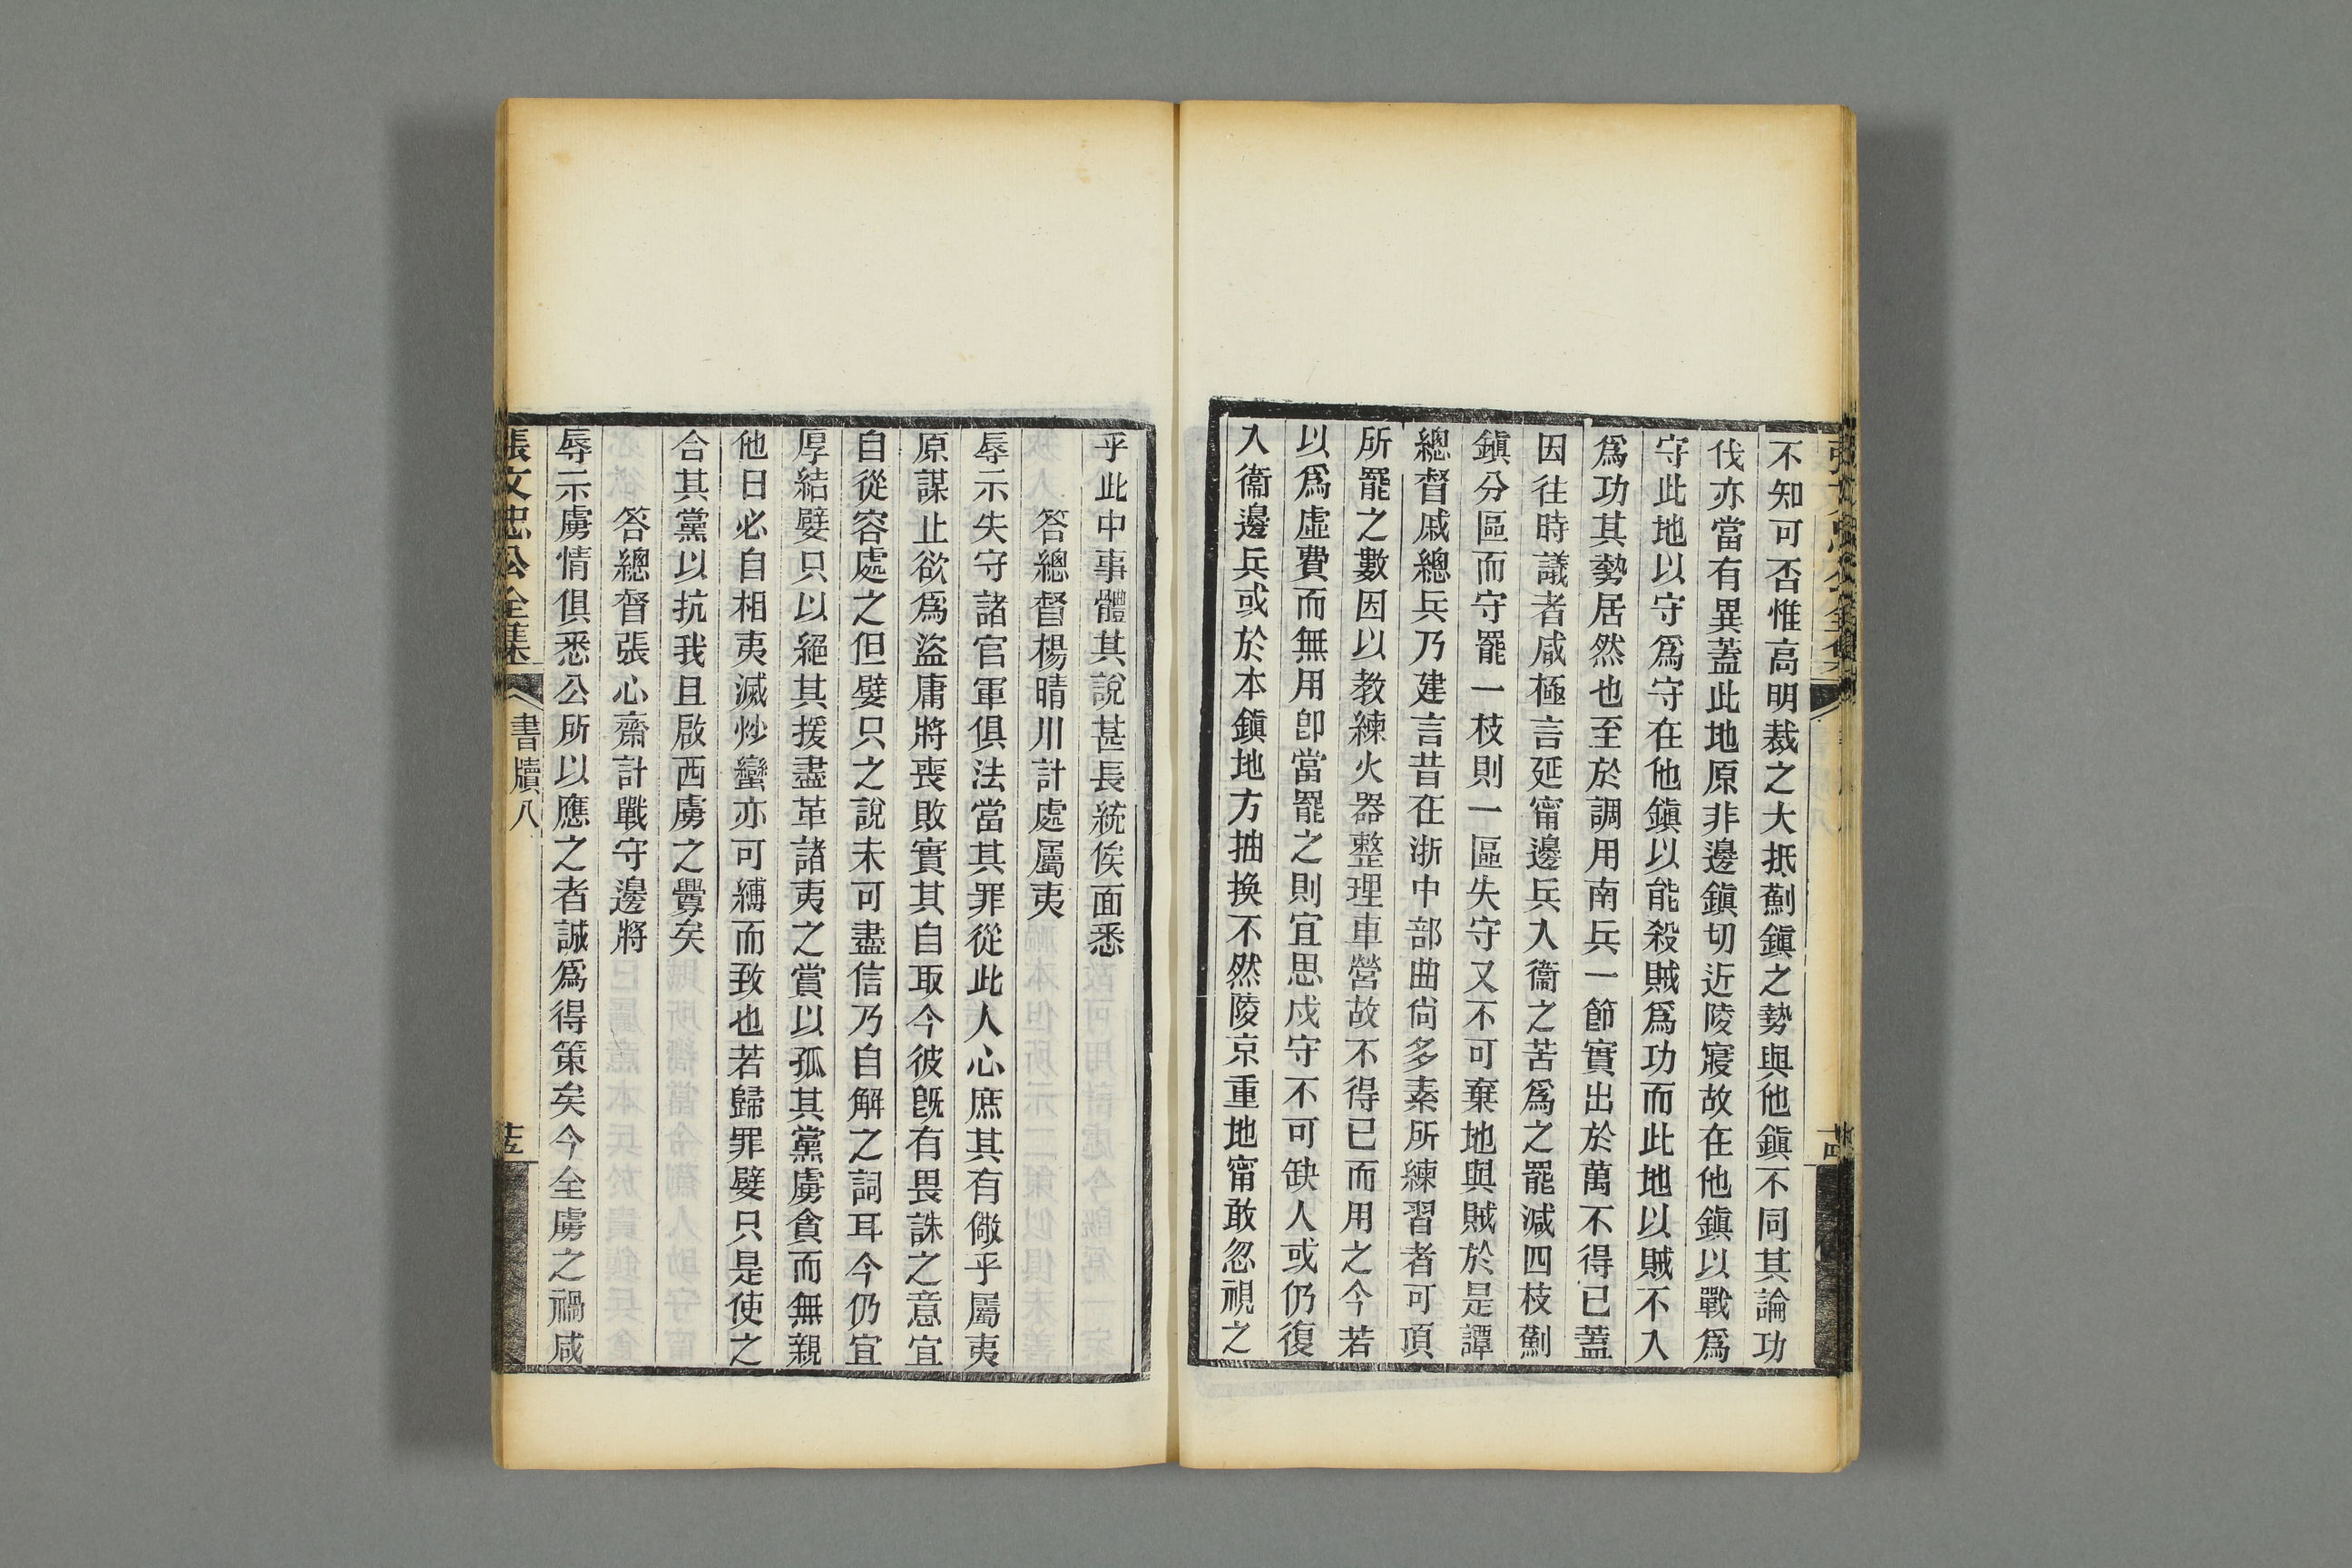 不知可否惟高明裁之大抵薊鎭之勢與他鎭不同其論功
伐亦當有異蓋此地原非邊鎭切近陵寢故在他鎭以戰爲
守此地以守爲守在他鎭以能殺賊爲功而此地以賊不入
爲功其勢居然也至於調用南兵一節實出於萬不得已蓋
因往時議者咸極言延甯邊兵入衞之苦爲之罷減四枝薊
鎭分區而守罷一枝則一區失守又不可棄地與賊於是譚
總督戚總兵乃建言昔在浙中部曲尙多素所練習者可頂
所罷之數因以教練火器整理車營故不得已而用之今若
以爲虛費而無用卽當罷之則宜思戍守不可缺人或仍復
入衞邊兵或於本鎭地方抽換不然陵京重地甯敢忽視之
乎此中事體其說甚長統俟面悉
答總督楊晴川計處屬夷
辱示失守諸官軍俱法當其罪從此人心庶其有儆乎屬夷
原謀止欲爲盜庸將喪敗實其自取今彼旣有畏誅之意宜
自從容處之但嬖只之說未可盡信乃自解之詞耳今仍宜
厚結嬖只以絕其援盡革諸夷之賞以孤其黨虜貪而無親
他日必自相夷滅炒蠻亦可縛而致也若歸罪嬖只是使之
合其黨以抗我且啟西虜之釁矣
答總督張心齋計戰守邊將
辱示虜情俱悉公所以應之者誠爲得策矣今全虜之禍咸
張文忠公全集
書牘八
十五